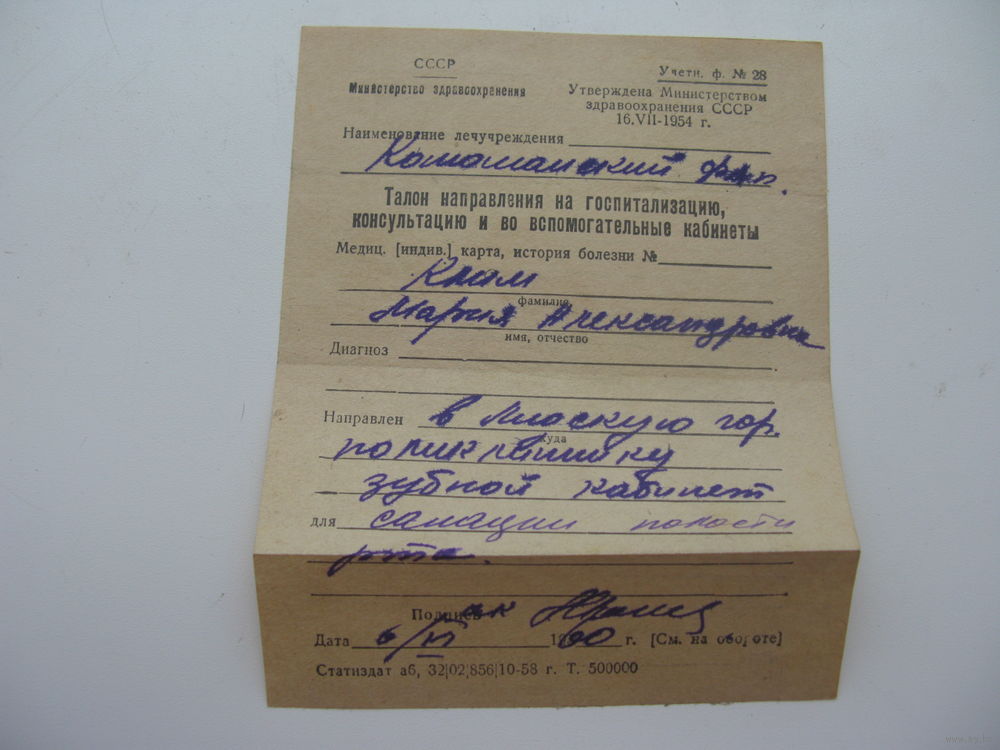 СССР
Учетн. ф. № 28
Министерство здравоохранения
Утверждена Министерством
здравоохранения СССР
16.VII-1954 г.
Наименование лечучреждения
фап.
Талон направления на госпитализацию,
консультацию и во вспомогательные кабинеты
Медиц. [индив.] карта, история болезни №
фамилия
Мария Александровна
имя, отчество
Диагноз
Направлен в Миаскую гор.
куда
поликлинику
зубной кабинет
для санации полости
рта.
Подпись
Дата 6/VI 1960 г. [См. на обороте]
Статиздат аб, 32|02|856|10-58 г. Т. 500000